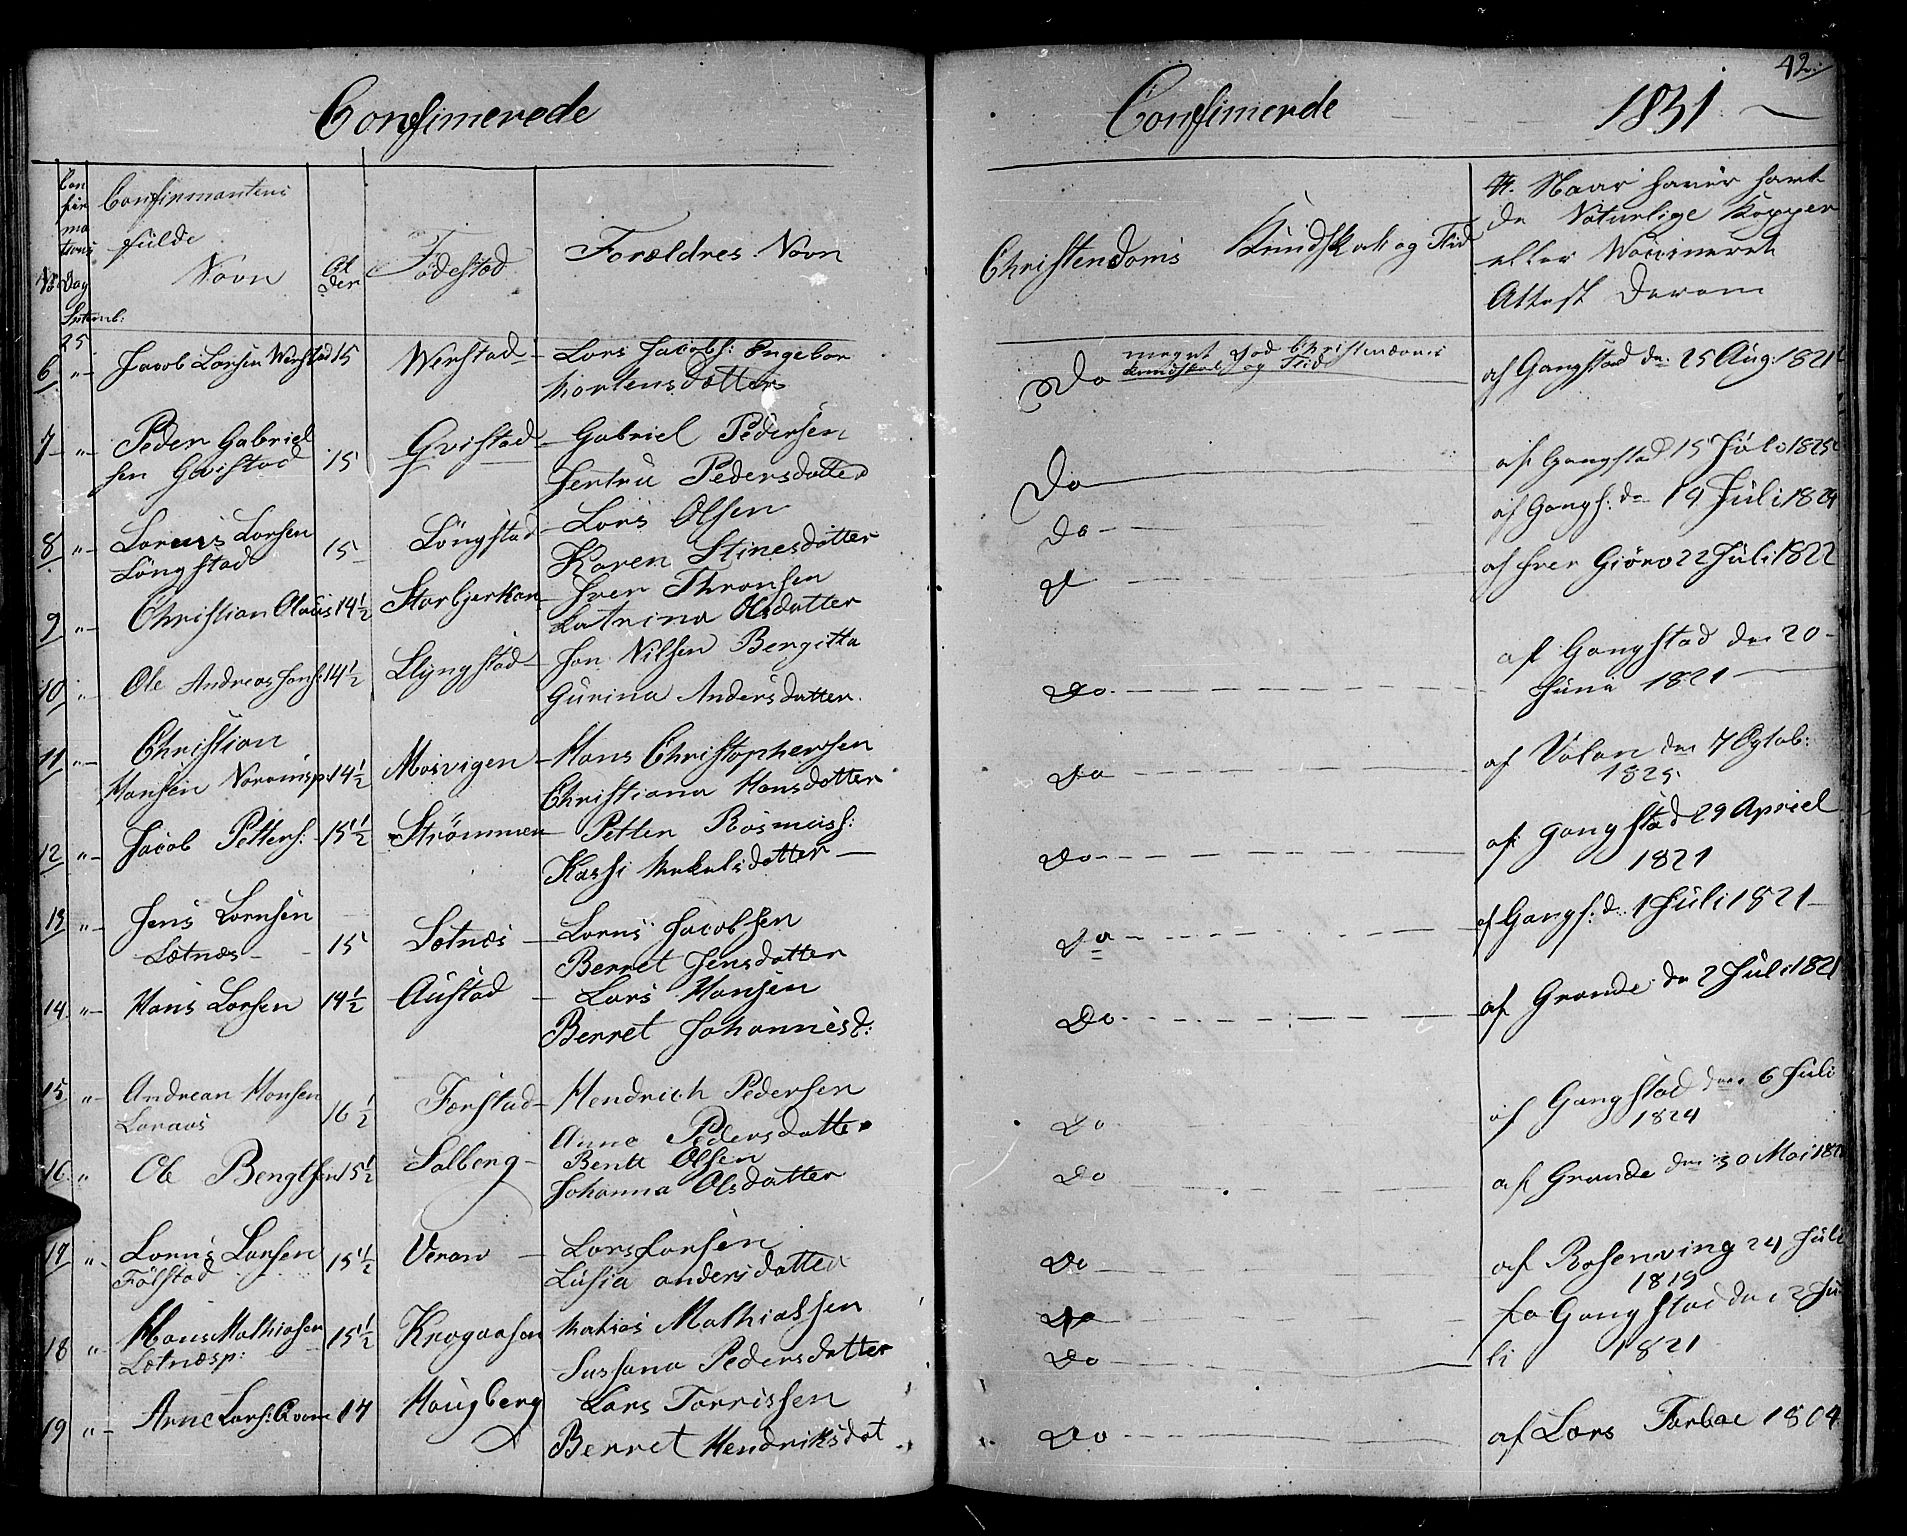 42.
Confimerede
Confimerde 1831
Con
fir
ma
tions
Dag
No
Confirmantens
fulde
Navn
Al
der
Fødestad
Forældres Navn
Christendoms Kundskab og Flid
Naar haver havt
de Naturlige Kopper
eller Vaccineret
Attest derom
Septemb:
25
6 " Jacob Larsen Werstad 15 Werstad Lars Jacobs: Ingebor
Mortensdatter
Do meget god Christendoms
Kundskab og Flid
af Gangstad d. 25 Aug: 1821
7 " Peder Gabriel
sen Gvistad 15 Gvistad Gabriel Pedersen
Jertru Pedersdatter
Do af Gangstad 15 Juli 1825
8 " Larens Larsen
Löngstad 15 Löngstad Lars Olsen
Karen Stinesdatter
Do af Gangs: d. 19 Juli 1829
9 " Christian Olaus 14½ Starbjerkan Iver Thronsen
Catrina Olsdatter
af Iver Giörv 22 Juli 1822
10 " Ole Andreas Jons: 14½ Llyngstad Jon Nilsen Bergitta
Gurina Andersdatter
Do af Gangstad den 20
Juni 1821
11 " Christian
Hansen Naramsp: 14½ Mosvigen Hans Christophersen
Christiana Hansdatter
Do af Valan den 7 Octob:
1825
12 " Jacob Petters: 15½ Strømmen Petter Rasmus:
Kassi Mekelsdatter
Do af Gangstad 29 Apriel
1821
13 " Jens Larnsen
Letnæs 15 Letnæs Larns Jacobsen
Berret Jensdatter
Do af Gangs: d. 1 Juli 1821
14 " Hans Larsen 14½ Austad Lars Hansen
Berret Johannesd:
Do af Grande den 2 Juli 1821
15 " Andrean Hansen
16½ Forstad Hendrich Pedersen
Anna Pedersdatter
Do af Gangstad den 6 Juli
1824
16 " Ole Bengtsen 15½ Salberg Bentt Olsen
Johanna Olsdatter
Do af Grande den 30 Mai
17 " Larns Larsen
Fölstad 15½ Veran Lars Larsen
Lusia andersdatter
Do af Rosenving 24 Juli
1819
18 " Hans Mathiasen
Letnæsp: 15½ Krogaasen Matias Mathiassen
Sussana Pedersdatter
Do fa Gangstad den 2 Ju
li 1821
Do
19 " Arne Lars: Qvam 17 Haugberg Lars Torrissen
Berret Hendriksdat
Do af Lars Farbae 1804